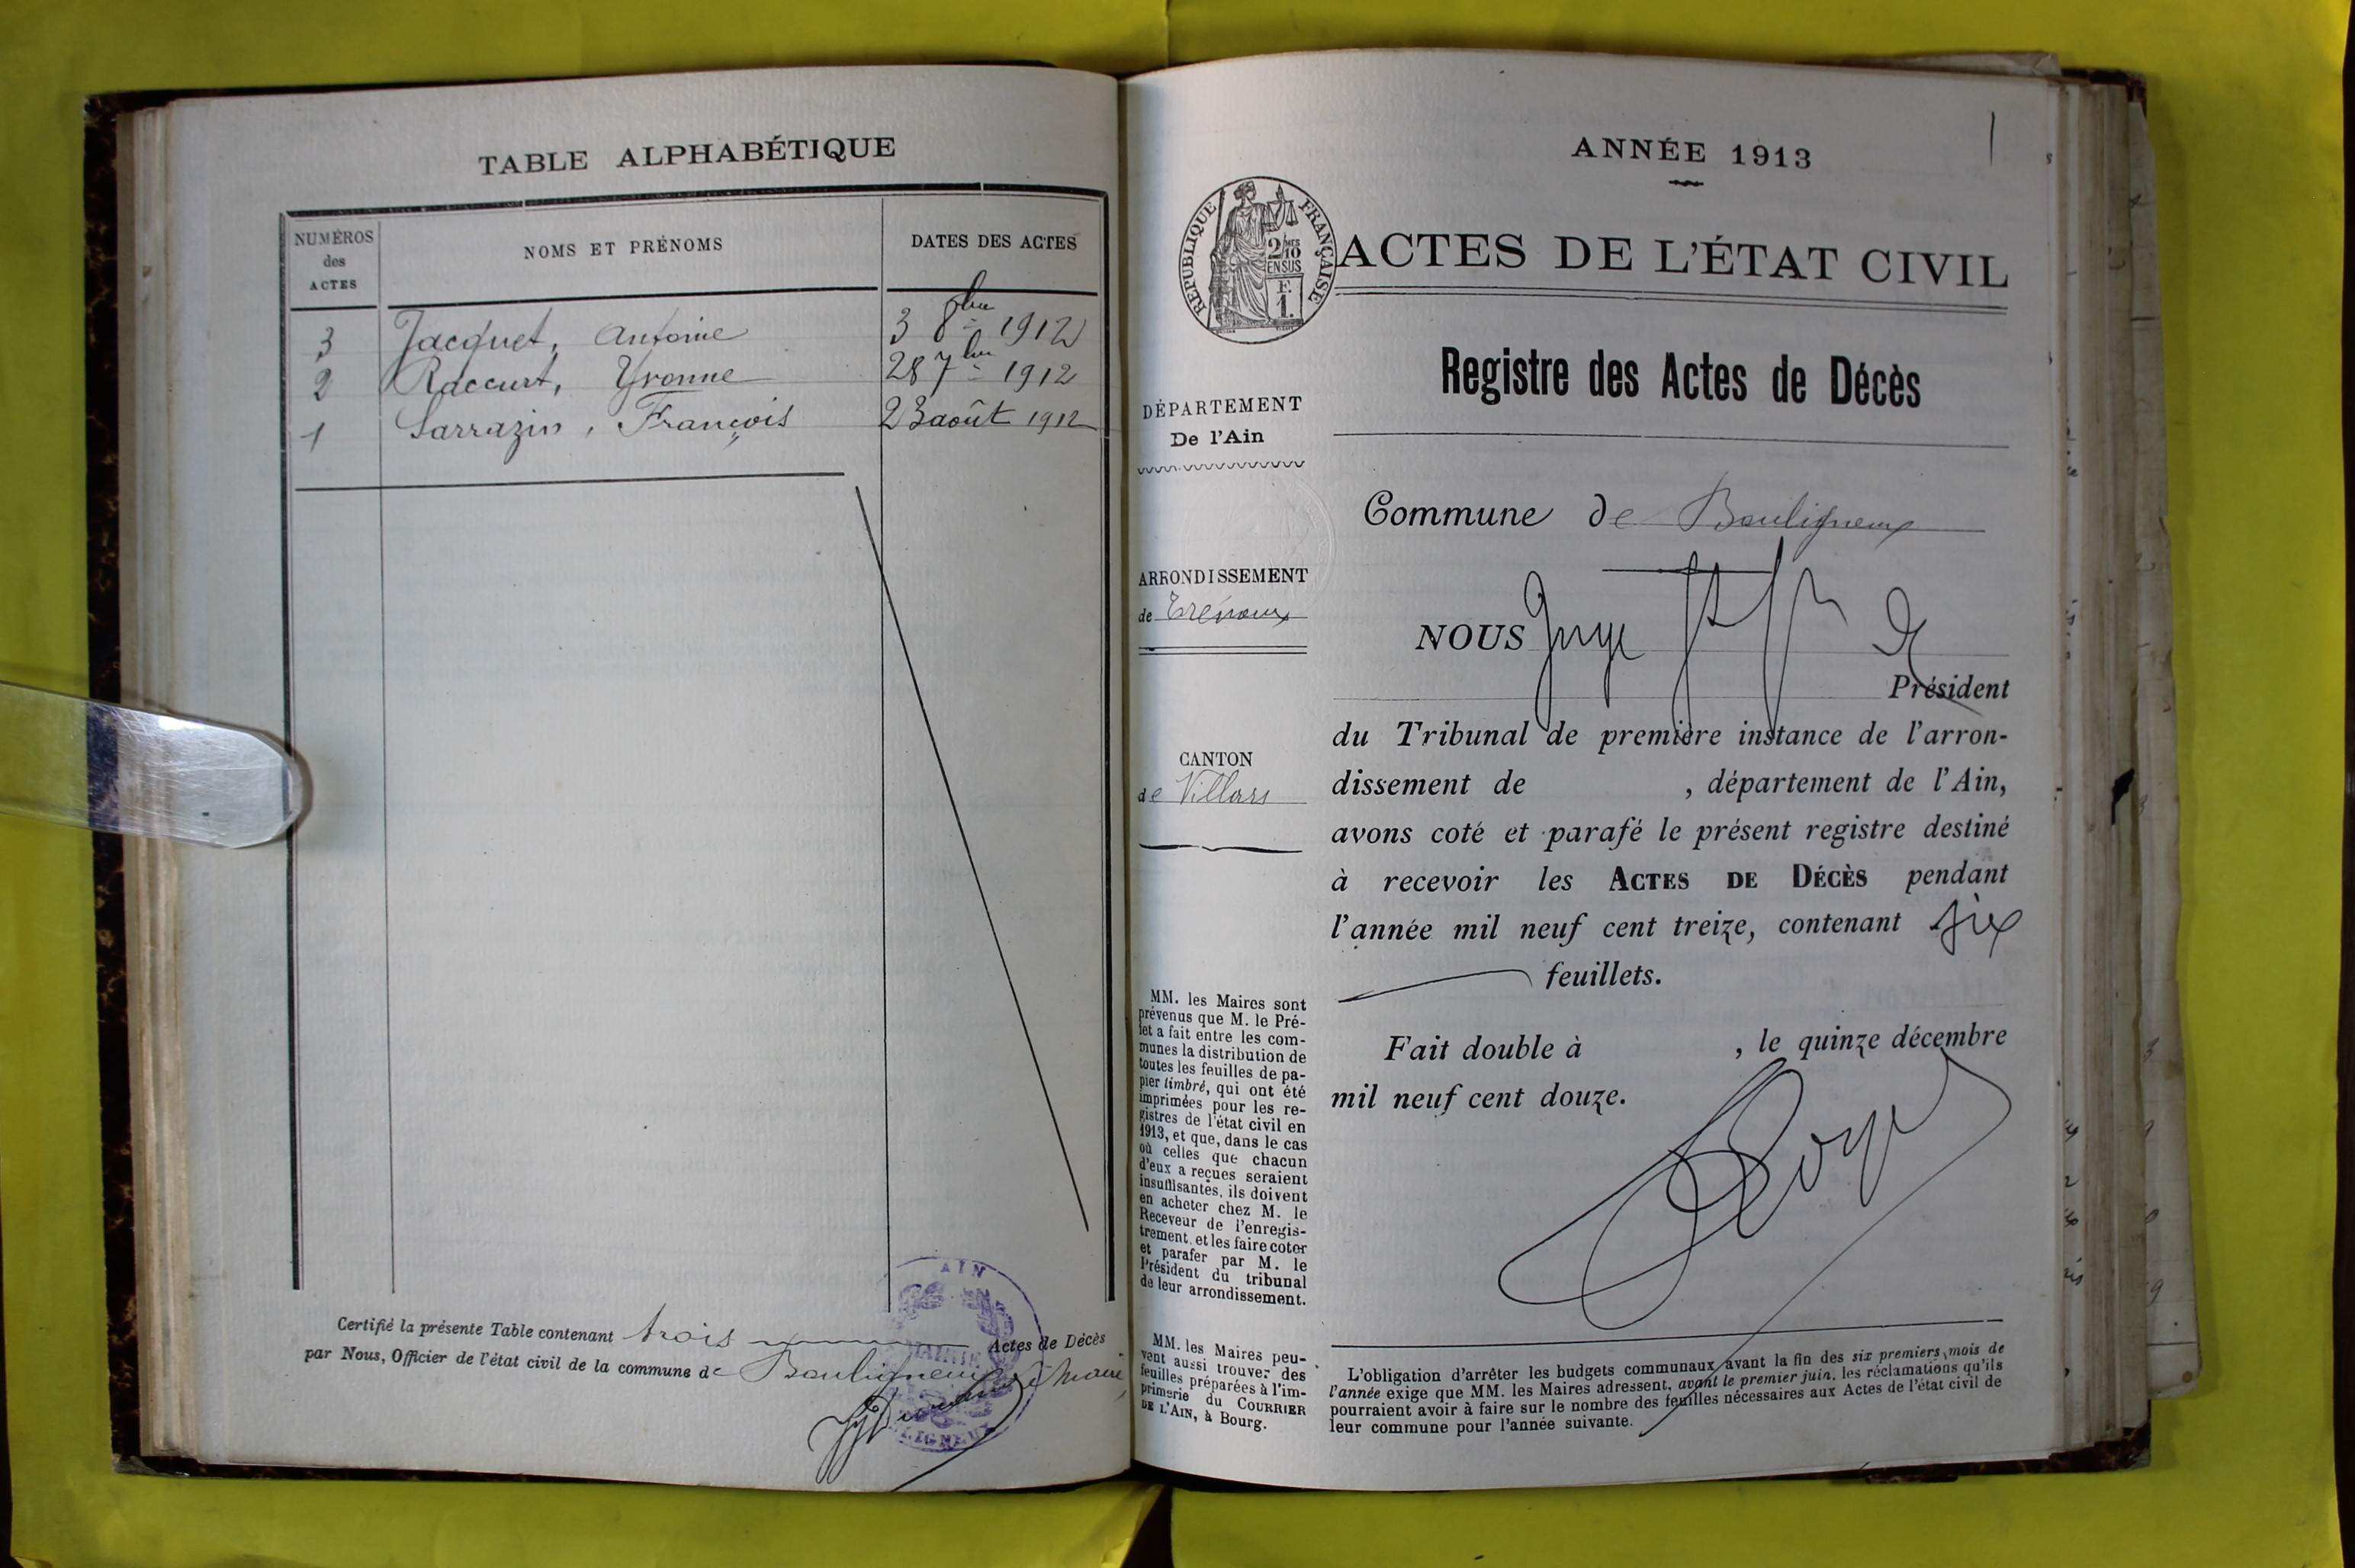 TABLE ALPHABÉTIQUE
NUMÉROS
des
ACTES
NOMS ET PRÉNOMS
DATES DES ACTES
3 Jacquet, Antoine 3 8bre 1912
2 Raccurt, Yvonne 28 7bre 1912
1 Sarrazin, François 23 août 1912
Certifié la présente Table contenant trois Actes de Décès
par Nous, Officier de l'état civil de la commune de Bouligneux
AIN
MAIRIE
ANNÉE 1913
RÉPUBLIQUE FRANÇAISE
2/10
EN SUS
F.
1.
ACTES DE L'ÉTAT CIVIL
Registre des Actes de Décès
DÉPARTEMENT
De l'Ain
ARRONDISSEMENT
de Trévoux
CANTON
de Villars
MM. les Maires sont
prévenus que M. le Pré-
fet a fait entre les com-
munes la distribution de
toutes les feuilles de pa-
pier timbré, qui ont été
imprimées pour les re-
gistres de l'état civil en
1913, et que, dans le cas
où celles que chacun
d'eux a reçues seraient
insuffisantes, ils doivent
en acheter chez M. le
Receveur de l'enregis-
trement, et les faire coter
et parafer par M. le
Président du tribunal
de leur arrondissement.
MM. les Maires peu-
vent aussi trouver des
feuilles préparées à l'im-
primerie du COURRIER
DE L'AIN, à Bourg.
Commune de Bouligneux
NOUS
Président
du Tribunal de première instance de l'arron-
dissement de , département de l'Ain,
avons coté et parafé le présent registre destiné
à recevoir les ACTES DE DÉCÈS pendant
l'année mil neuf cent treize, contenant six
feuillets.
Fait double à , le quinze décembre
mil neuf cent douze.
L'obligation d'arrêter les budgets communaux avant la fin des six premiers mois de
l'année exige que MM. les Maires adressent, avant le premier juin, les réclamations qu'ils
pourraient avoir à faire sur le nombre des feuilles nécessaires aux Actes de l'état civil de
leur commune pour l'année suivante.